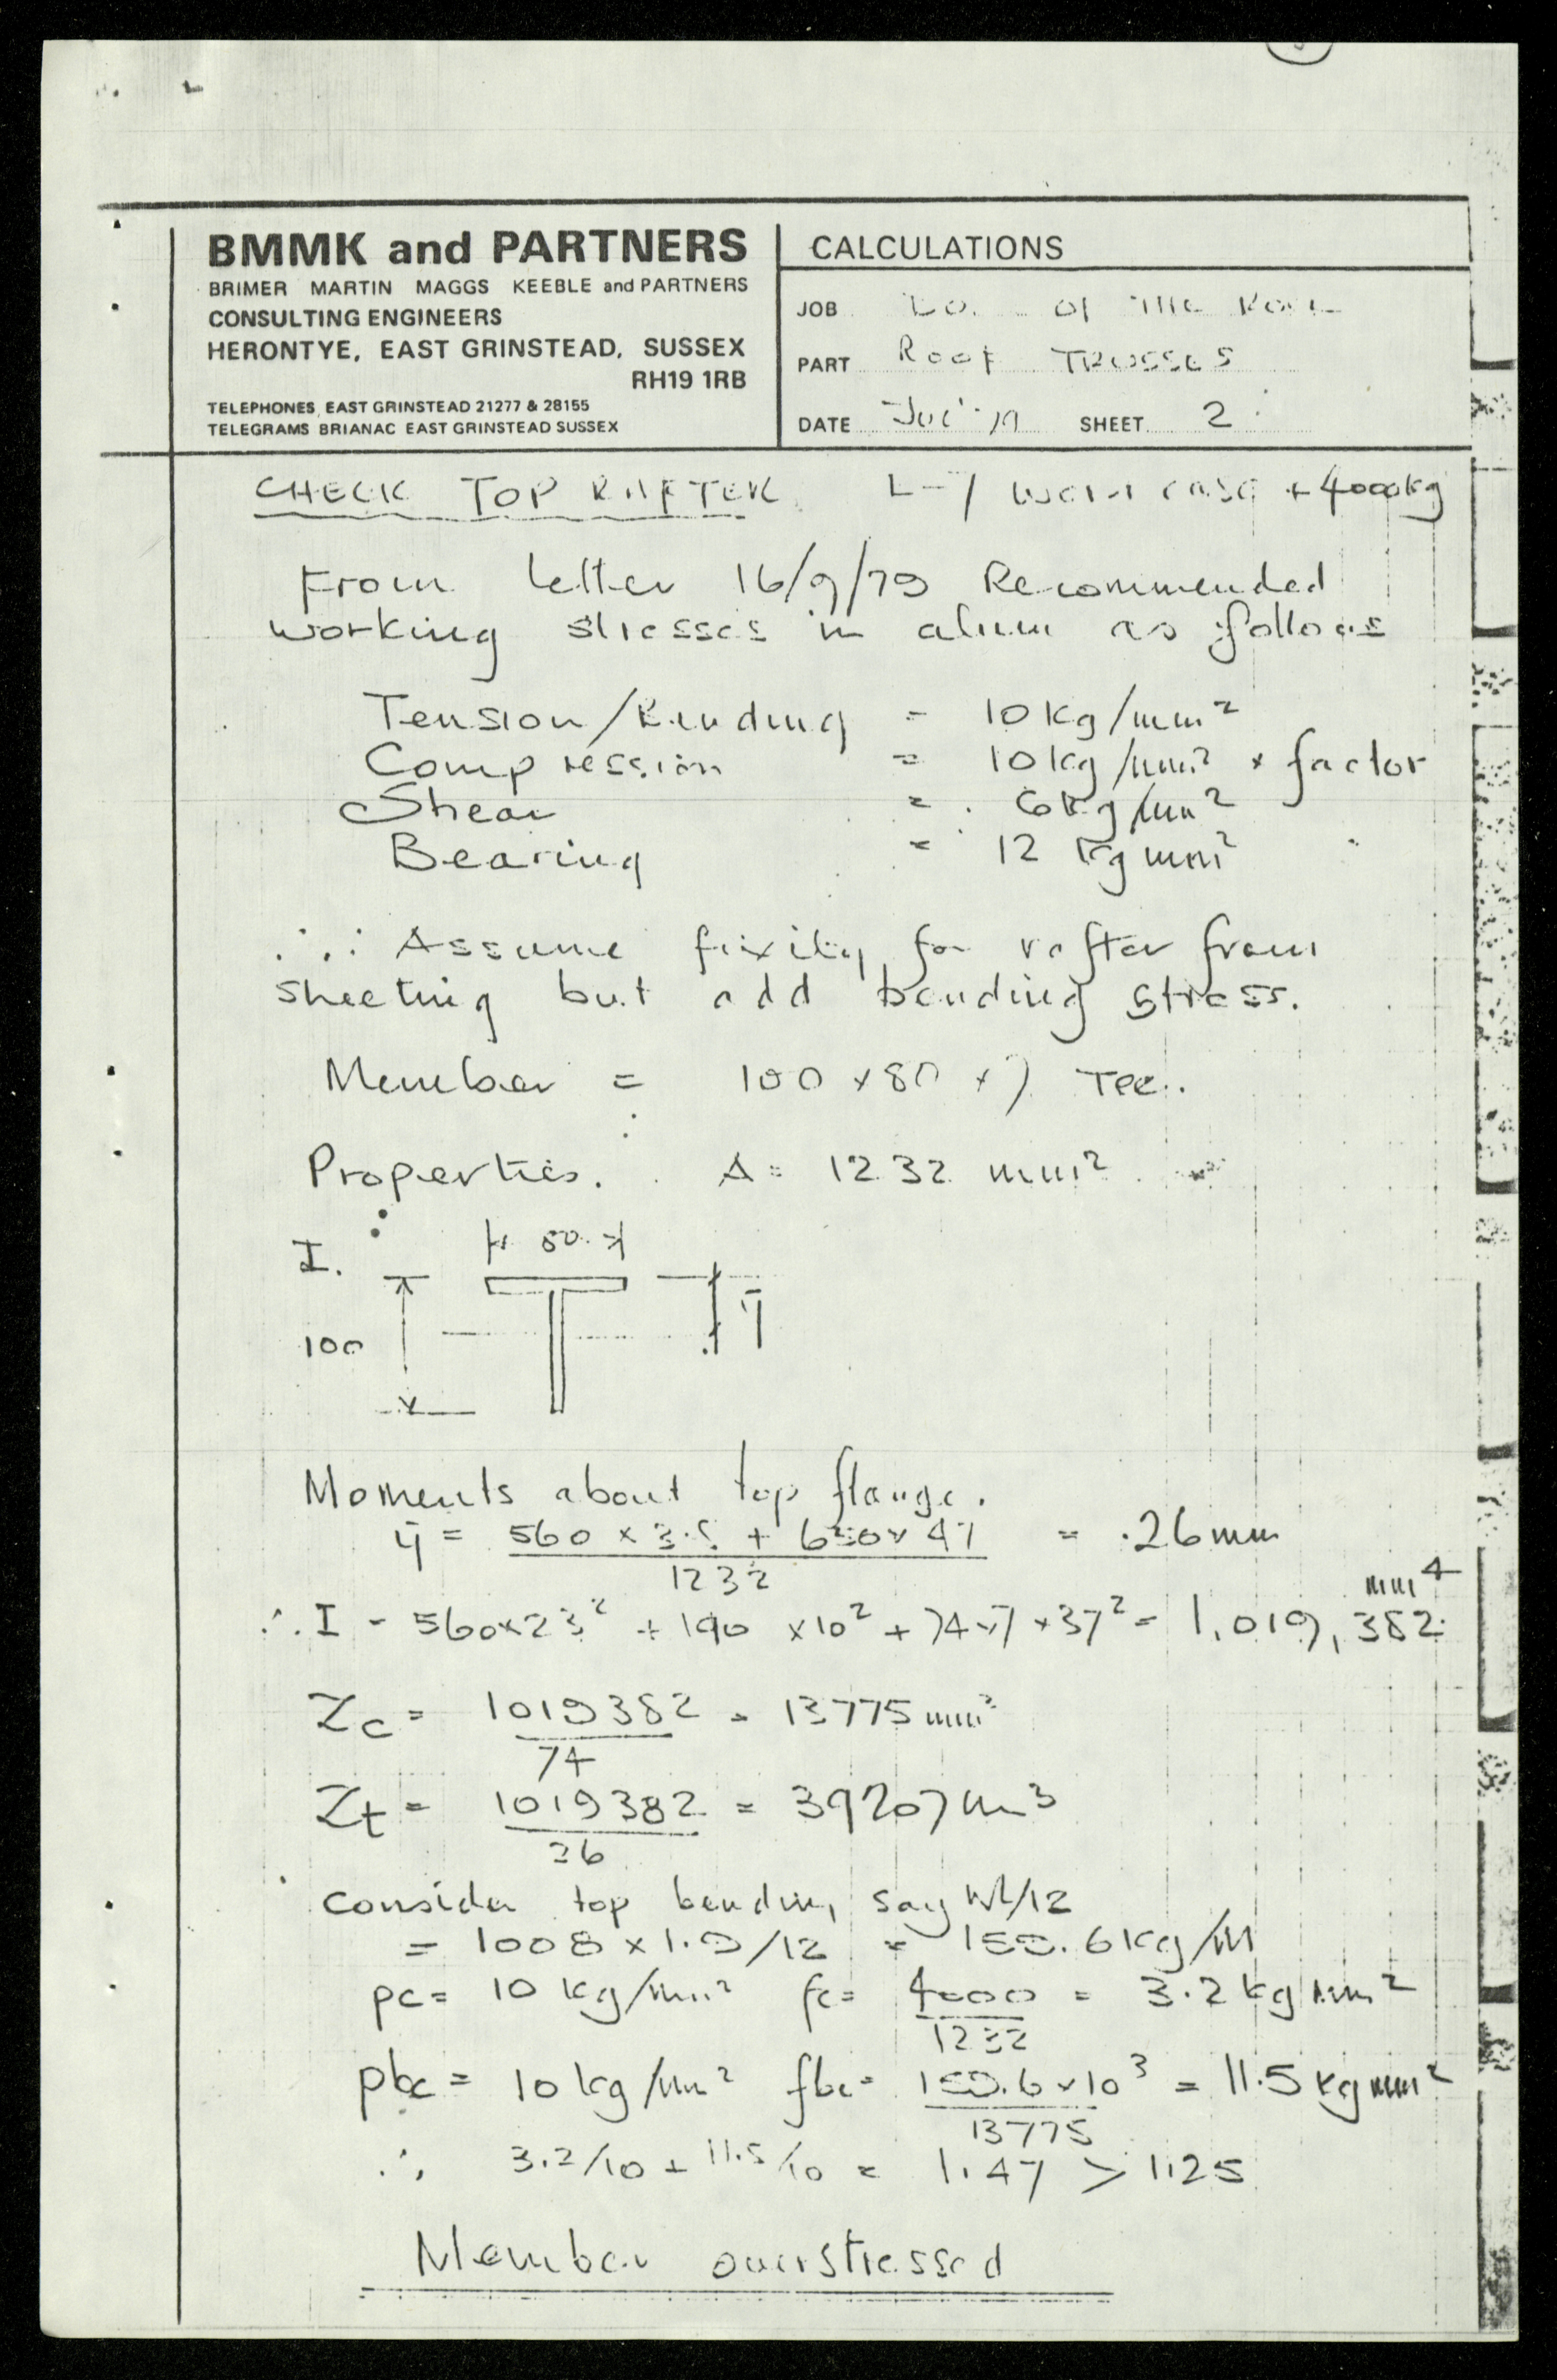 BMMK and PARTNERS
BRIMER MARTIN MAGGS KEEBLE and PARTNERS
CONSULTING ENGINEERS
HERONTYE, EAST GRINSTEAD, SUSSEX
RH19 1RB
TELEPHONES EAST GRINSTEAD 21277 & 28155
TELEGRAMS BRIANAC EAST GRINSTEAD SUSSEX
CALCULATIONS
JOB of THE
PART Roof TRUSSES
DATE SHEET 2
CHECK TOP RAFTER L-7 worst case + 4000kg
From letter 16/9/79 Recommended
working stresses in alum as follows
Tension/Bending = 10kg/mm²
Compression = 10kg/mm² × factor
Shear = 6kg/mm²
Bearing = 12 kg mm²
∴ Assume fixity for rafter from
sheeting but add bending stress.
Member = 100 × 80 × 7 Tee.
Properties. A = 1232 mm²
I.
80
100
ȳ
Moments about top flange.
ȳ = 560 × 3.5 + 650 × 47 = 26mm
1232
∴ I = 560×23² + 190 × 10² + 74×7×37² = 1,019,382 mm⁴
Zc = 1019382 = 13775 mm³
74
Zt = 1019382 = 39207 mm³
26
Consider top bending say WL/12
= 1008 × 1.9/12 = 159.6 kg/M
pc = 10 kg/mm² fc = 4000 = 3.2 kg mm²
1232
pbc = 10 kg/mm² fbc = 159.6 × 10³ = 11.5 kg mm²
13775
∴ 3.2/10 + 11.5/10 = 1.47 > 1.25
Member overstressed